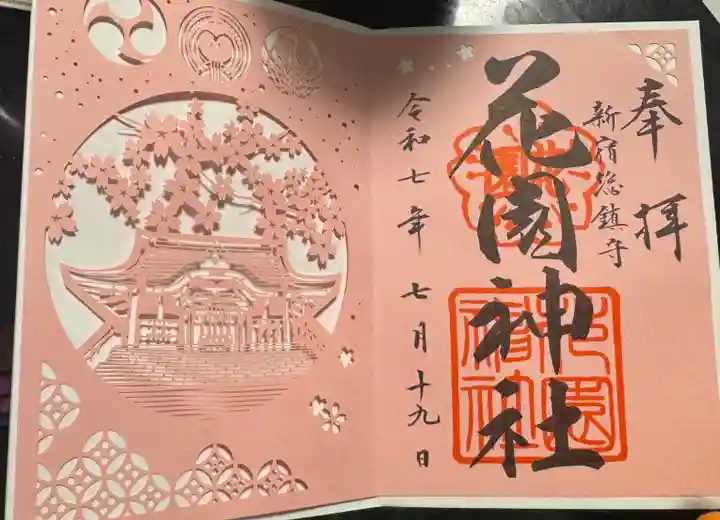 奉拝
新宿総鎮守
花園神社
令和七年七月十九日